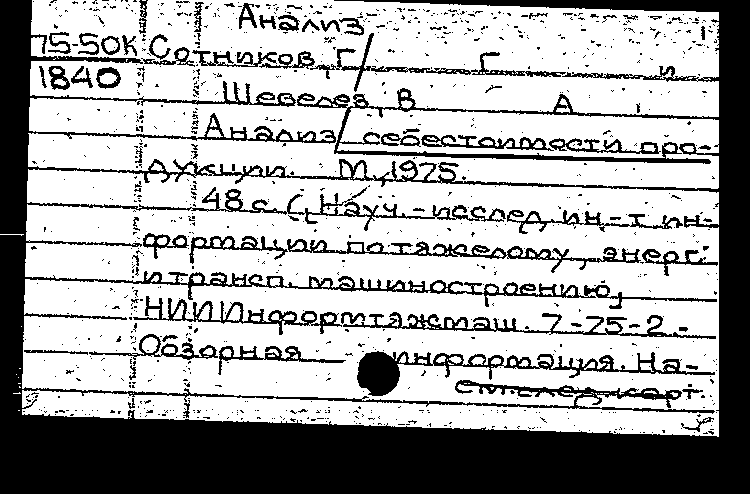 Анализ
75-50К Сотников, Г Г и
1840
Шевелев, В А
Анализ/ себестоимости про-
дукции. М., 1975.
48 с. (Науч.-исслед. ин-т ин-
формации по тяжелому, энерг.
и трансп. машиностроению,
НИИИнформтяжмаш. 7-75-2.-
Обзорная информация. На-
см.след.карт.